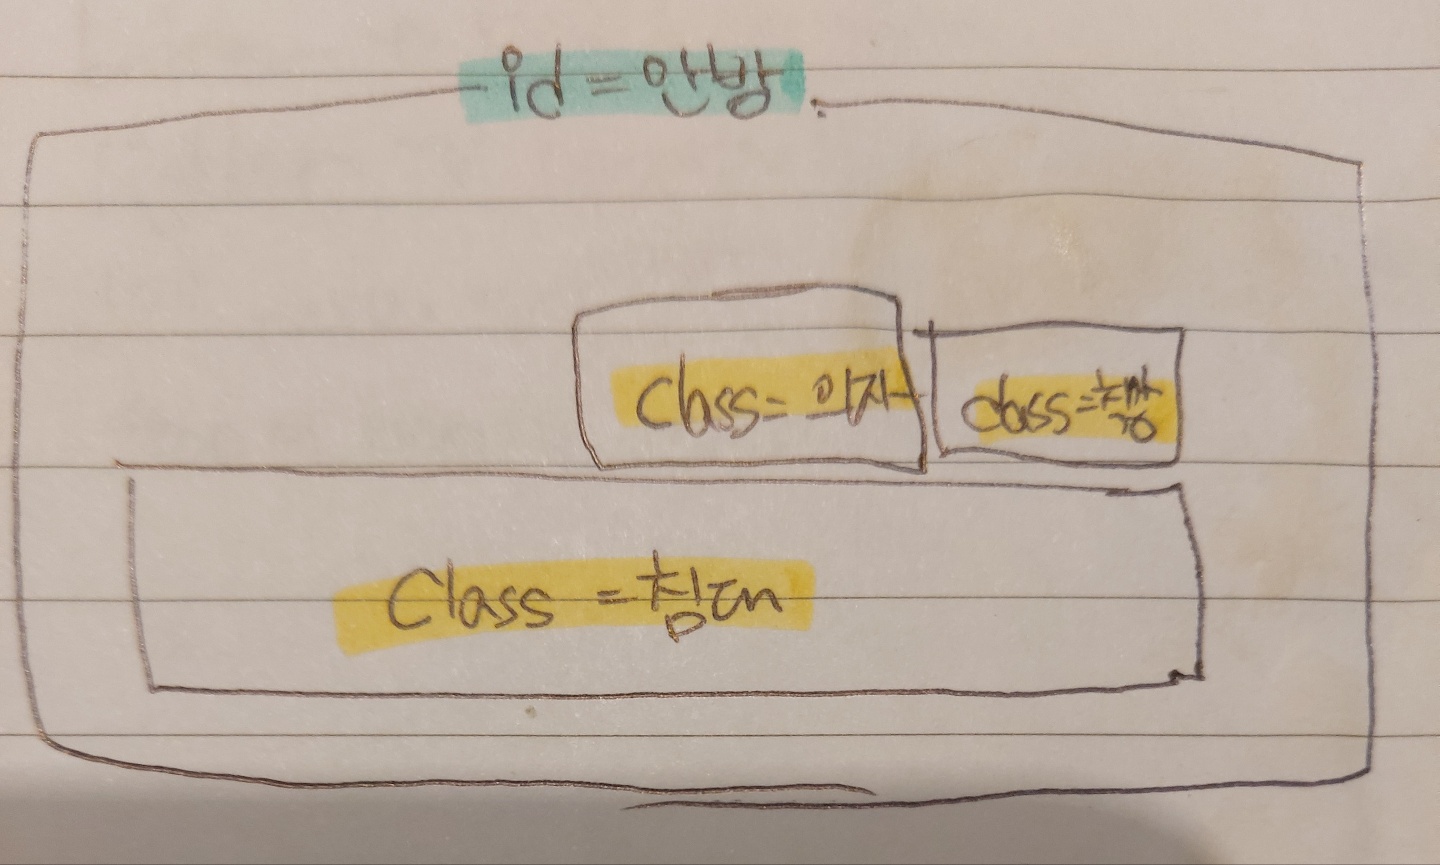 id = 안방
class = 의자
class = 책장
class = 침대